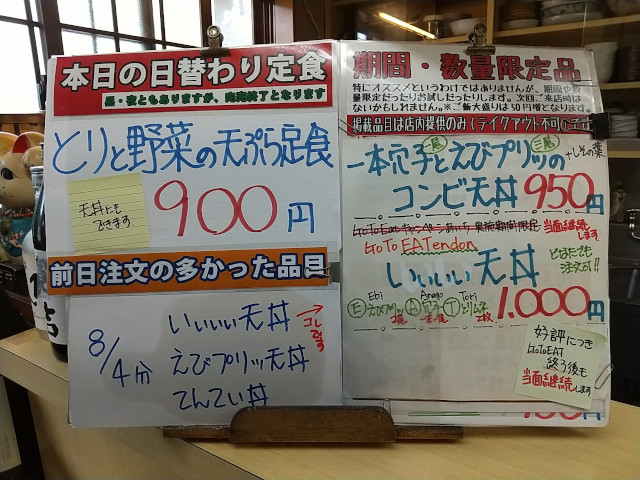 本日の日替わり定食
昼・夜ともありますが、完売終了となります
とりと野菜の天ぷら定食
天丼にも
できます
900円
前日注文の多かった品目
8/4分
いいいい天丼
→コレです
えびプリッ天丼
てんてい丼
期間・数量限定品
特にオススメというわけではありませんが、期間や数
量限定だったりお試しだったりします。次回ご来店時は
ないかもしれません。※ご飯大盛りは50円増となります。
掲載品目は店内提供のみ(テイクアウト不可)です
一尾 三尾
一本穴子とえびプリッの +しその葉
コンビ天丼 950円
GoToEatキャンペーンあいち 実施期間限定 当面継続します
GoTo EATendon
いいいい天丼 どなたでも
注文OK!!
Ebi Anago Tori
Eえびプリッ A穴子 Tとり天 1,000円
2尾 一本 2枚
好評につき
GoToEAT
終了後も
当面継続します